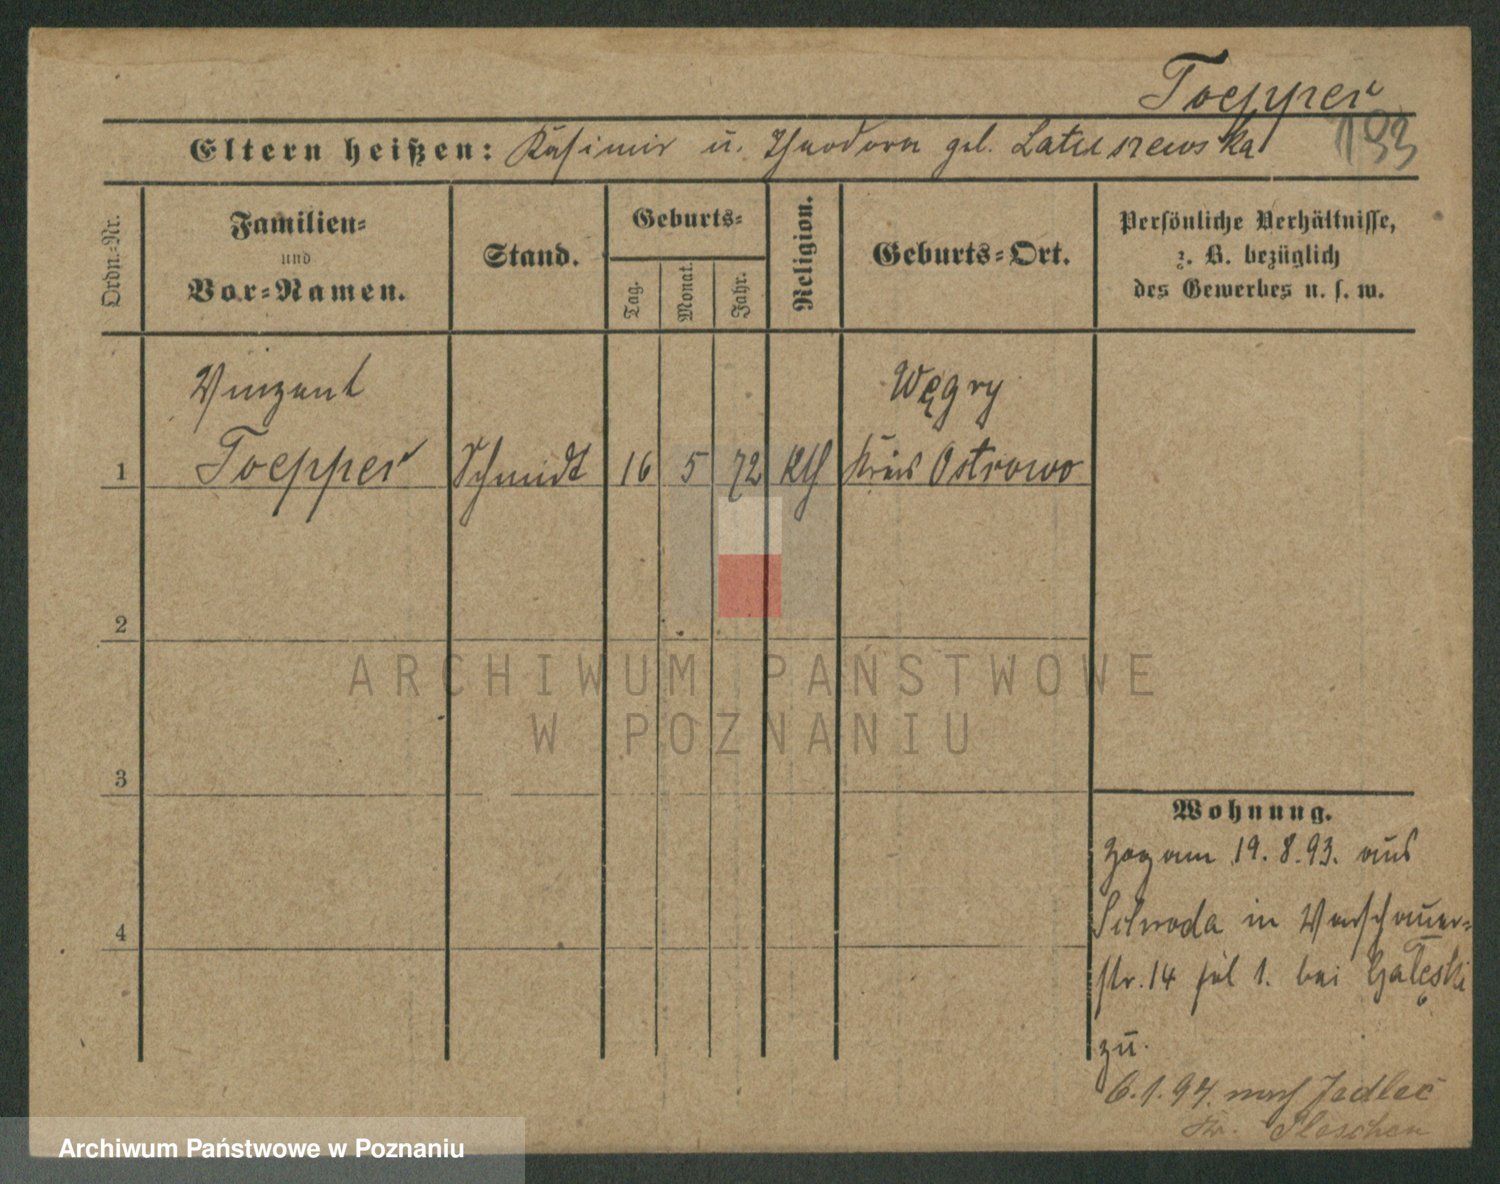 Toepper
Eltern heißen: Kasimir u. Theodora geb. Latuszewska
193
Ordn.-Nr.
Familien-
und
Vor-Namen.
Stand.
Geburts-
Tag.
Monat.
Jahr.
Religion.
Geburts-Ort.
Persönliche Verhältnisse,
z. B. bezüglich
des Gewerbes u. s. w.
Vinzent
Węgry
1 Toepper Schmidt 16 5 72 kth Kreis Ostrowo
2
ARCHIWUM PAŃSTWOWE
W POZNANIU
3
Wohnung.
zog am 19. 8. 93. aus
Schroda in Warschauer-
str. 14 bei Gałęski
4
zu.
6. 1. 94. nach Jedlec
Kr. Pleschen
Archiwum Państwowe w Poznaniu